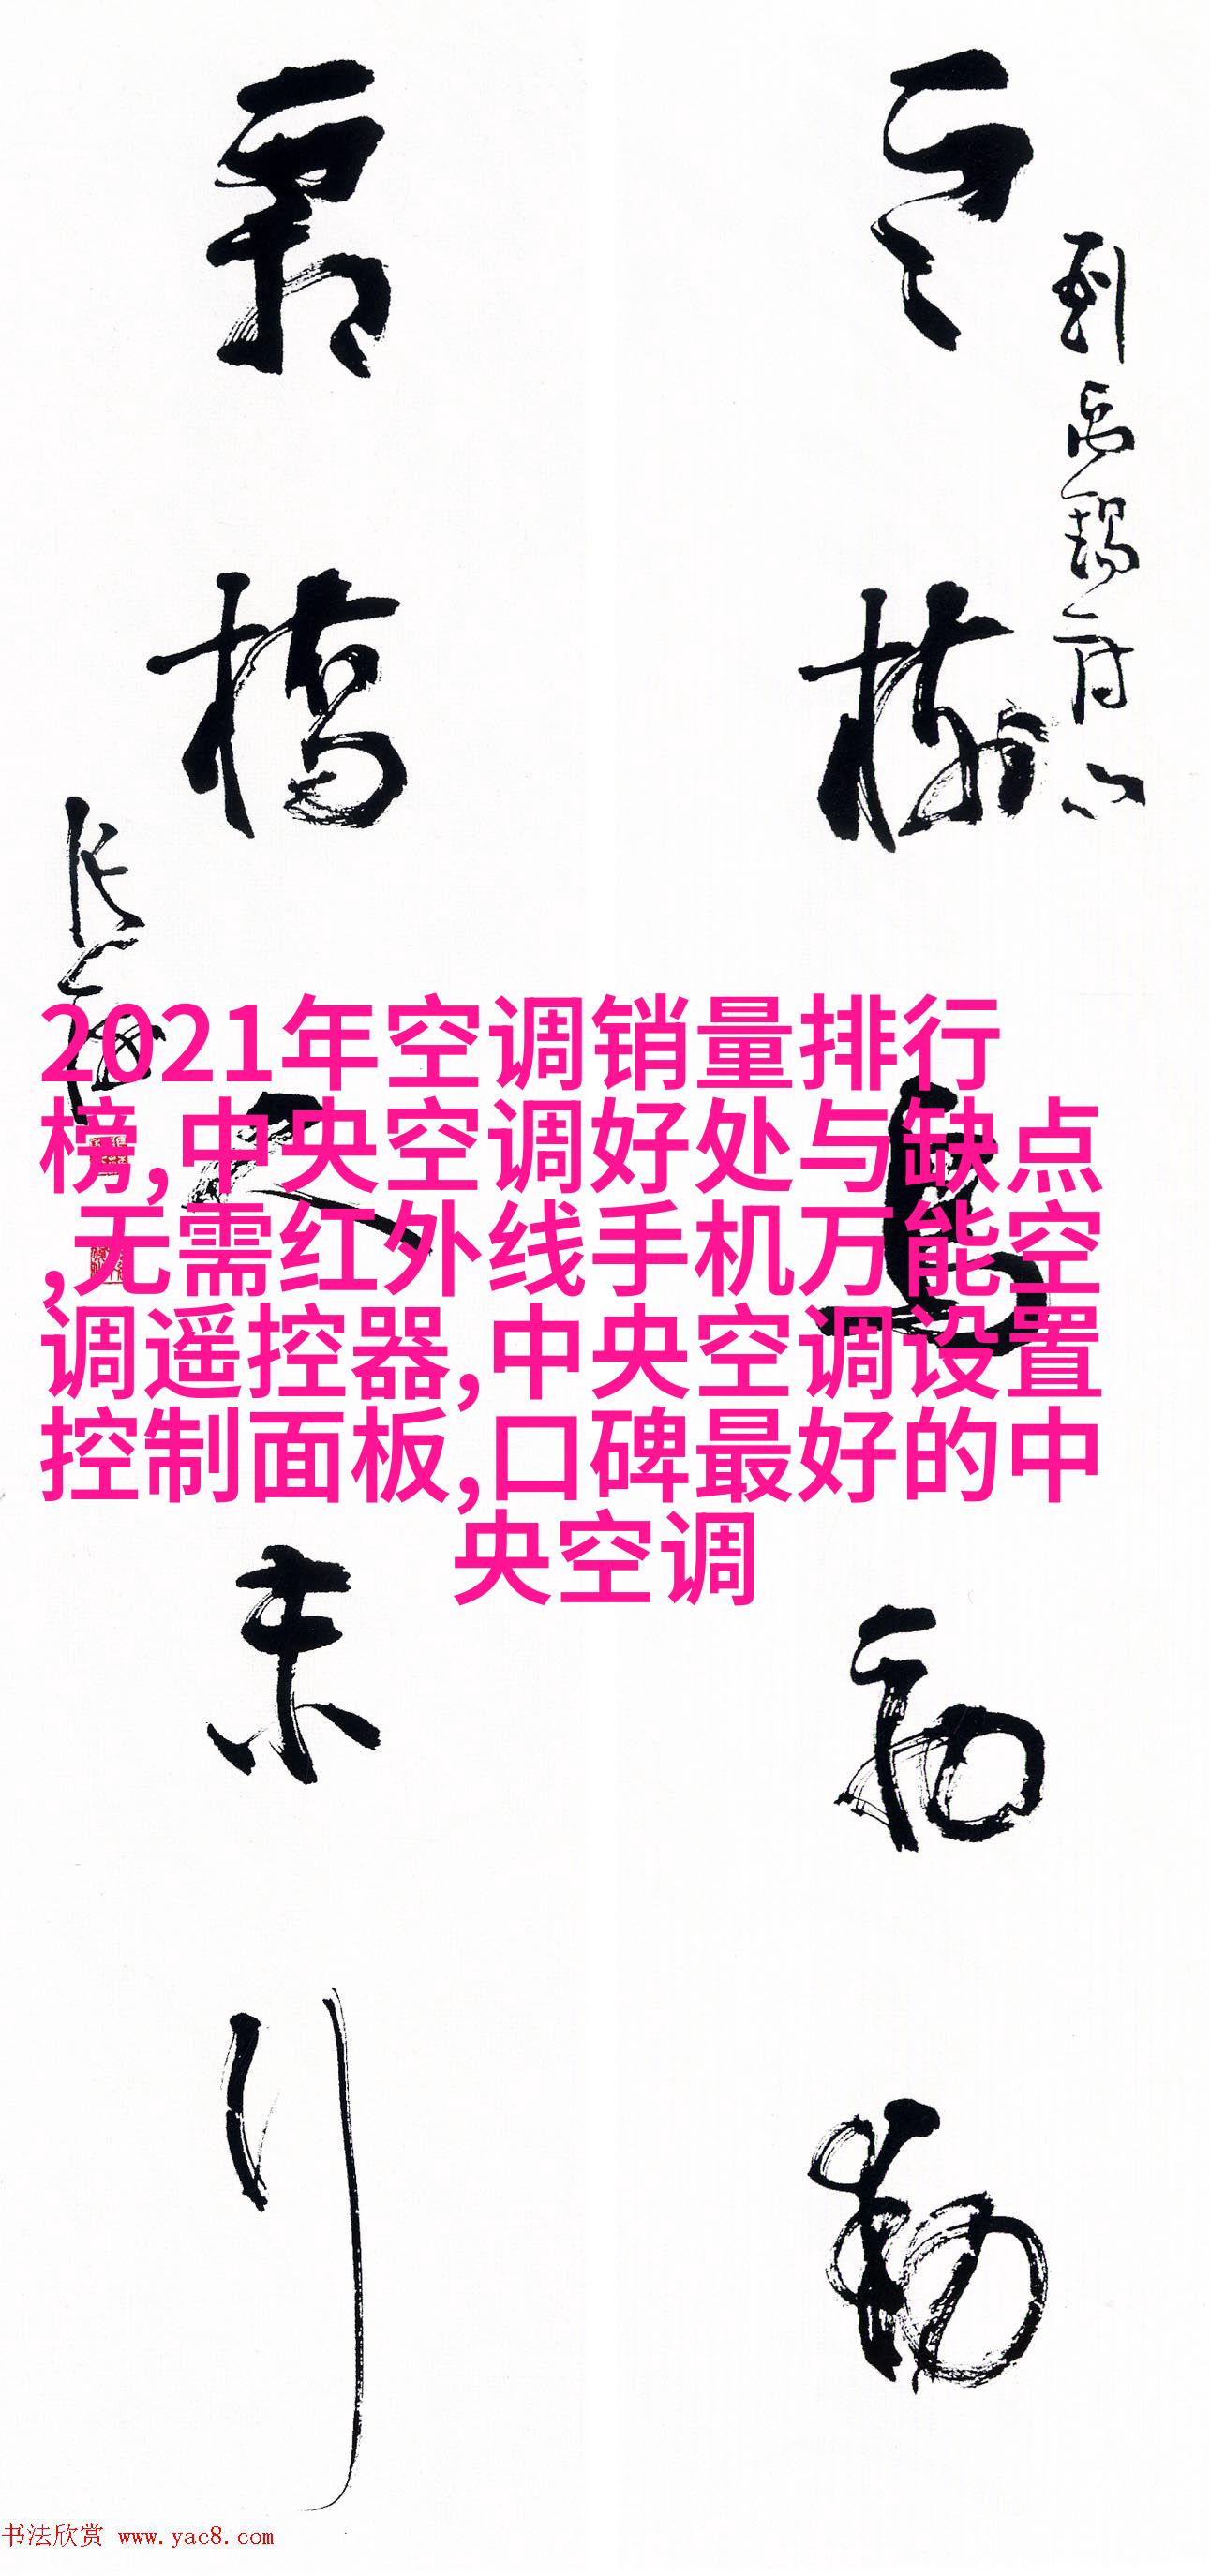 劉禹錫詩句
寒樹鳥初動
霜橋人未行
2021年空调销量排行
榜,中央空调好处与缺点
,无需红外线手机万能空
调遥控器,中央空调设置
控制面板,口碑最好的中
央空调
书法欣赏 www.yac8.com